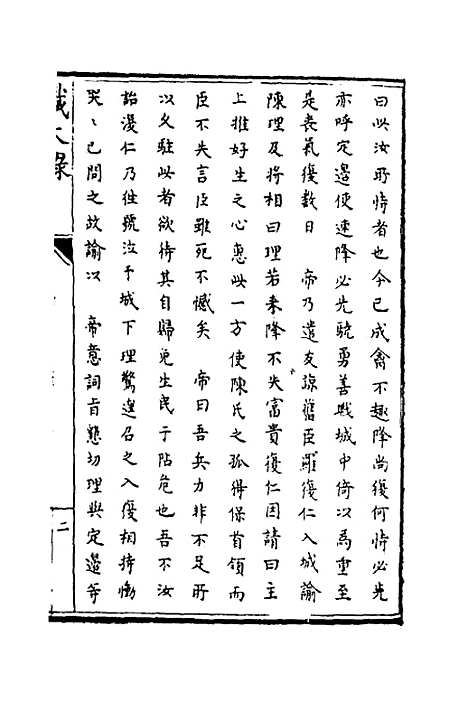 曰此汝所恃者也今已成禽不趣降尚復何恃必先
亦呼定邊使速降必先驍勇善戰城中倚以為重至
是喪氣復數日　帝乃遣友諒舊臣羅復仁入城諭
陳理及將相曰理若来降不失富貴復仁因請曰主
上推好生之心惠此一方使陳氏之孤得保首領而
臣不失言臣雖死不憾矣　帝曰吾兵力非不足所
以久駐此者欲待其自歸免生民于阽危也吾不汝
詒漫仁乃往號泣于城下理驚遑召之入復相持慟
哭〻已問之故諭以　帝意詞旨懇切理與定邊等
二